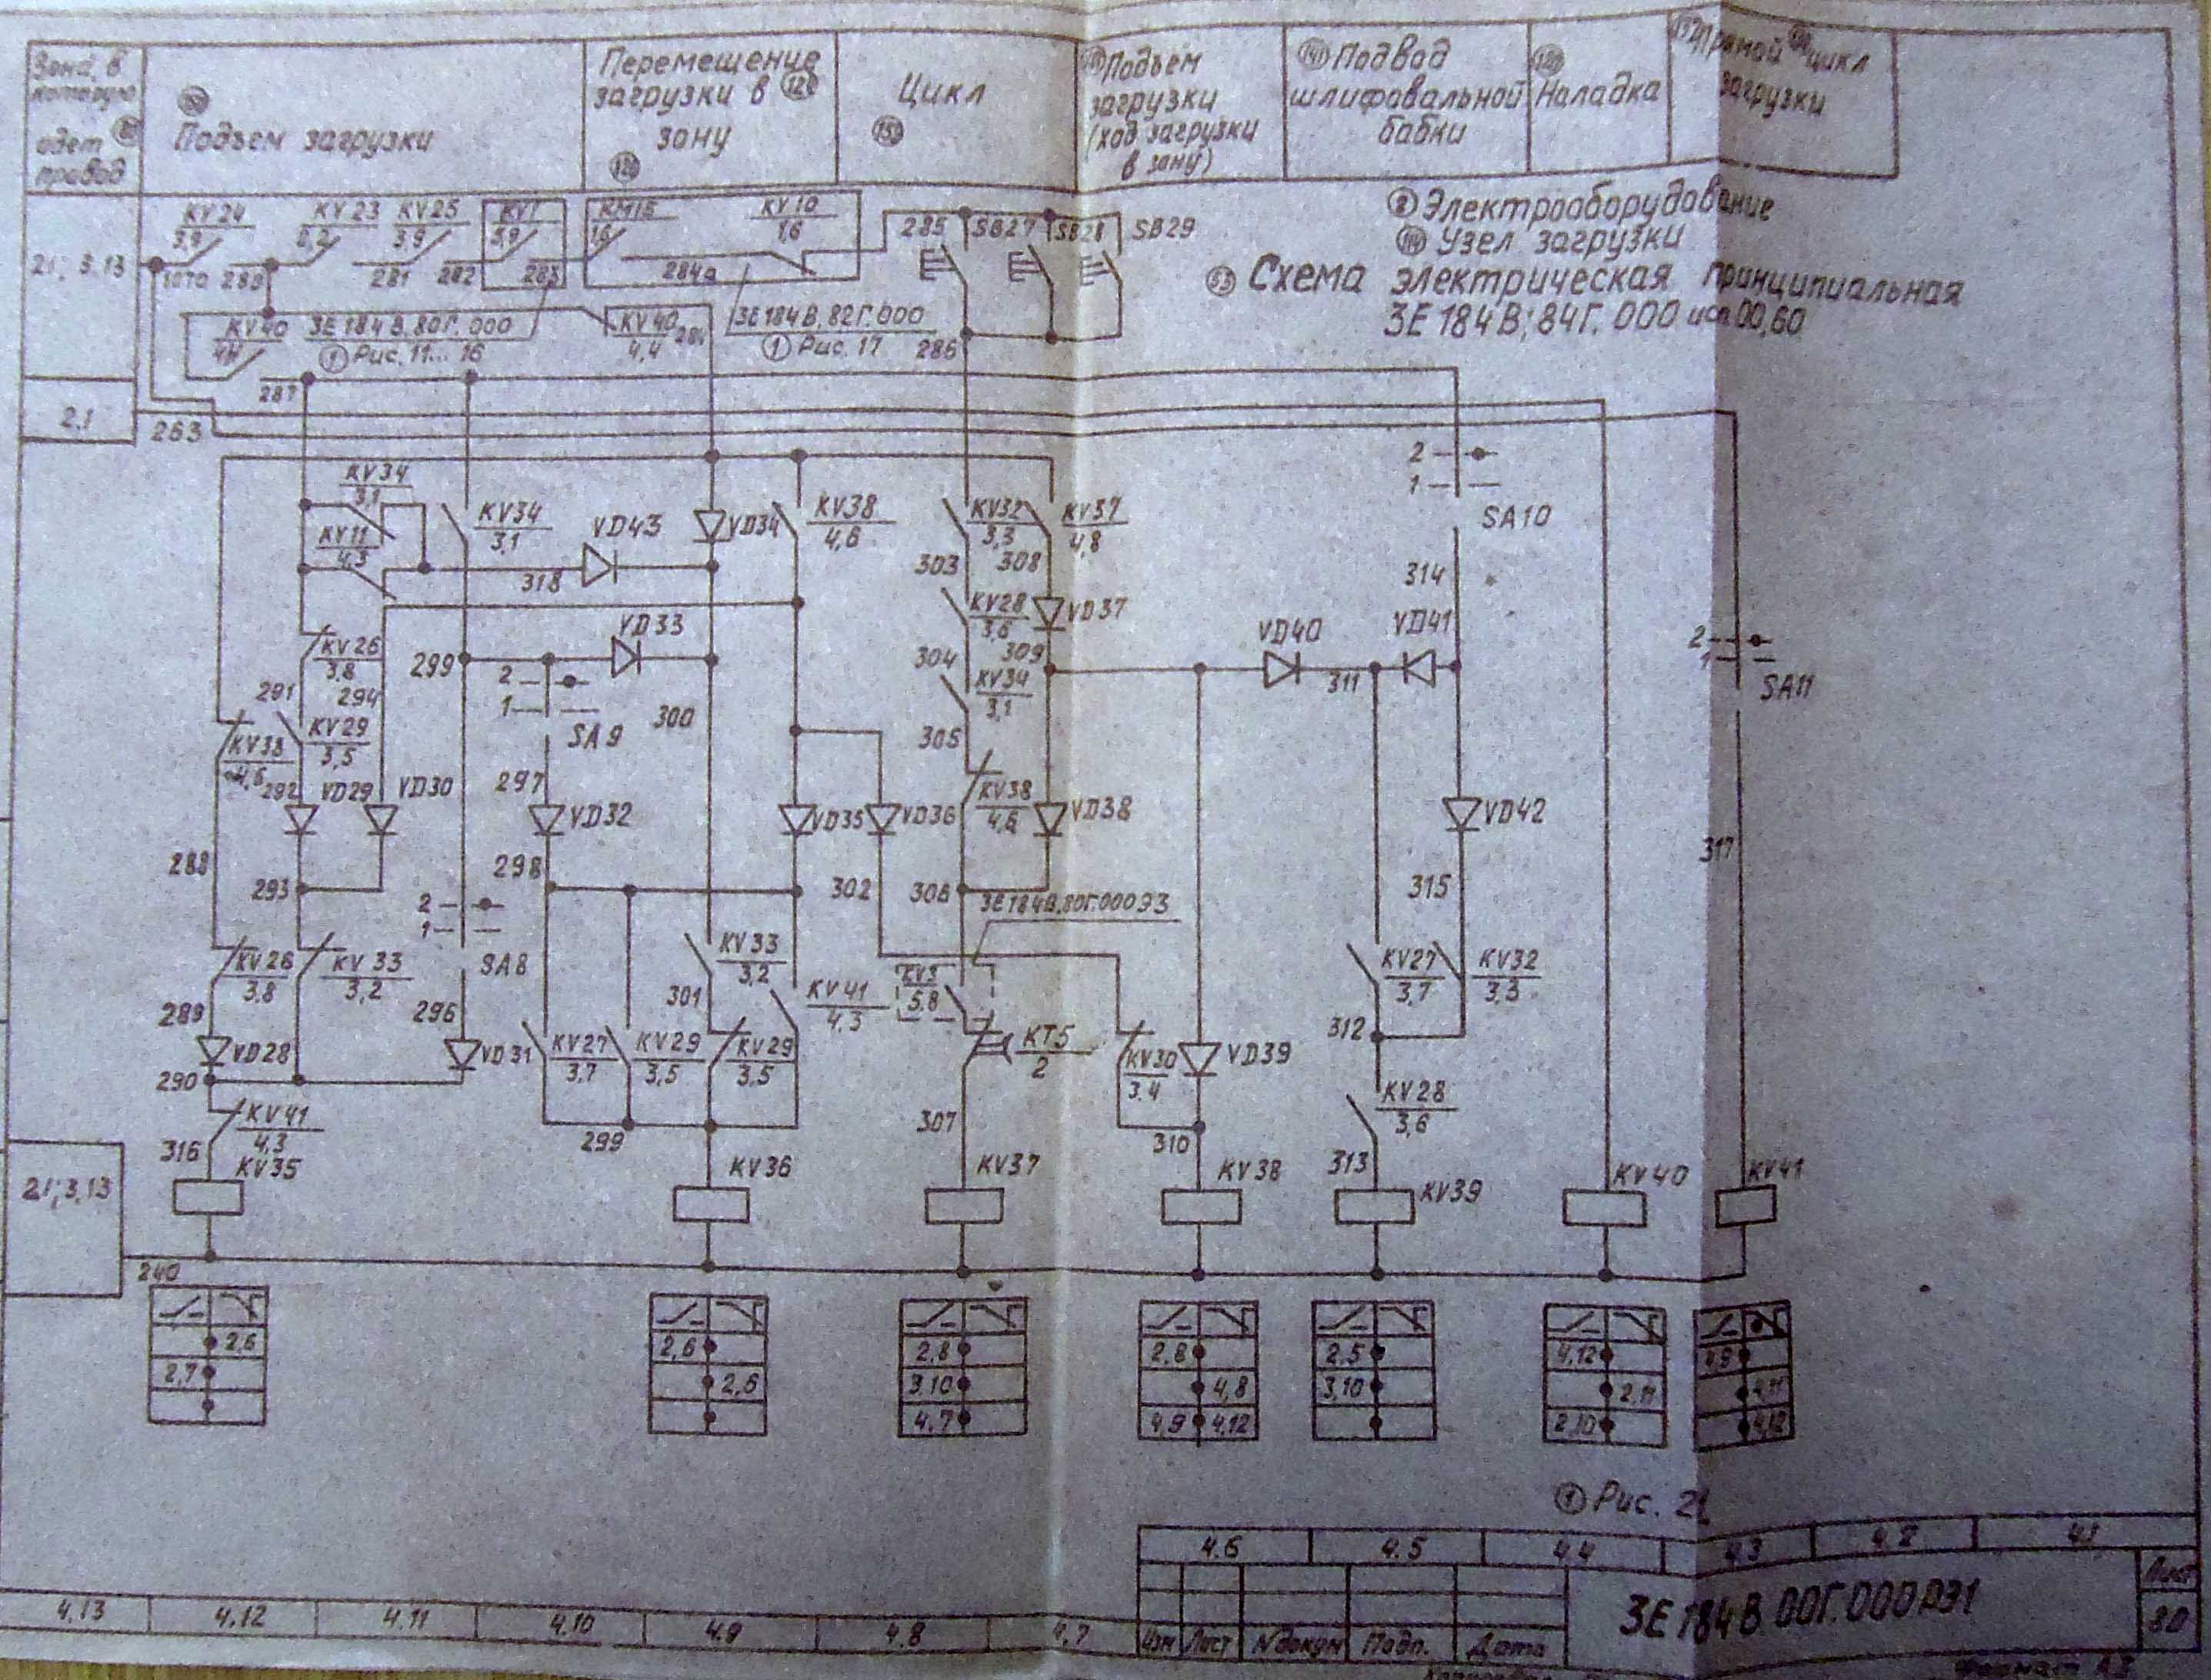 Зона, в
которую
идет
привод
Подъем загрузки
Перемещение
загрузки в
зону
Цикл
Подъем
загрузки
(ход загрузки
в зону)
Подвод
шлифовальной
бабки
Наладка
Прямой цикл
загрузки
2 Электрооборудование
Узел загрузки
53 Схема электрическая принципиальная
3Е 184 В; 84Г. 000 исп 00,60
2.1; 3.13
KV24
3,9
KV 23
KV25
3,9
KV1
3,9
KM15
1,6
KV10
1,6
285
SB27
SB28
SB29
281
282
283
284а
KV40
4.11
3Е 184 В. 80Г. 000
1 Рис. 11... 16
KV40
4,4
3Е 184 В. 82Г. 000
1 Рис. 17
286
287
2.1
263
KV34
3,1
KV11
4,3
KV34
3,1
VD43
VD34
KV38
4,6
KV32
3,3
KV37
4,8
2
1
SA10
318
303
308
314
KV28
3,6
VD37
VD33
VD40
VD41
KV26
3,8
299
304
309
2
1
SA11
291
294
2
1
SA9
300
KV34
3,1
311
KV29
3,5
305
292
VD29
VD30
297
VD32
VD35
VD36
KV38
4,6
VD38
VD42
317
288
293
298
302
306
3Е 184В.80Г.000 Э3
315
2
1
SA8
KV26
3,8
KV 33
3,2
KV33
3,2
KV41
4,3
KV3
5.8
KV27
3,7
KV32
3,3
289
296
301
312
VD28
VD31
KV27
3,7
KV29
3,5
KV29
3,5
KT5
2
KV30
3.4
VD39
290
KV41
4,3
299
307
310
KV28
3,6
316
313
KV35
KV36
KV37
KV38
KV39
KV40
KV41
2.1; 3.13
240
2,6
2,7
2,6
2,6
2,8
3.10
4,7
2,8
4,8
4,9
4,12
2,5
3,10
4,12
2,11
2,10
4,9
4,11
4,12
1 Рис. 21
4.6
4.5
4.4
4.3
4.2
4.1
4.13
4.12
4.11
4.10
4.9
4.8
4.7
3Е 184 В. 00Г. 000 РЭ1
Лист
80
Изм
Лист
N докум
Подп.
Дата